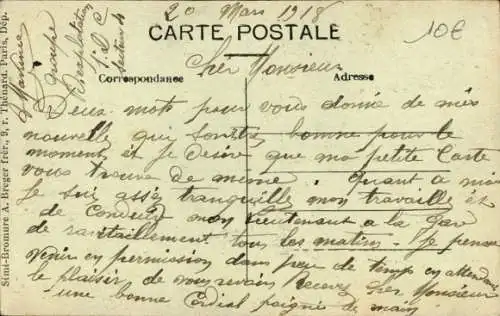 20 Mars 1918
CARTE POSTALE
10€
Cher Monsieur
Correspondance
Adresse
Deux mots pour vous donné de mes
nouvelle qui sontes bonne pour le
moment et je desire que ma petite Carte
vous trouve de meme. Quant a moi
je suis assés tranquille mon travaille et
de conduire mon lieutenant a la gar
de ravitaillement tous les matins. Je pense
venir en permission dans peu de temps en attendant
le plaisir de vous revoir Recevez Cher Monsieur
une bonne Cordial poignée de main
Martinie
groupe
Exploitation
S.D.C
secteur 4
Simi-Bromure A. Breger frèr., 9, r. Thénard, Paris, Dép.